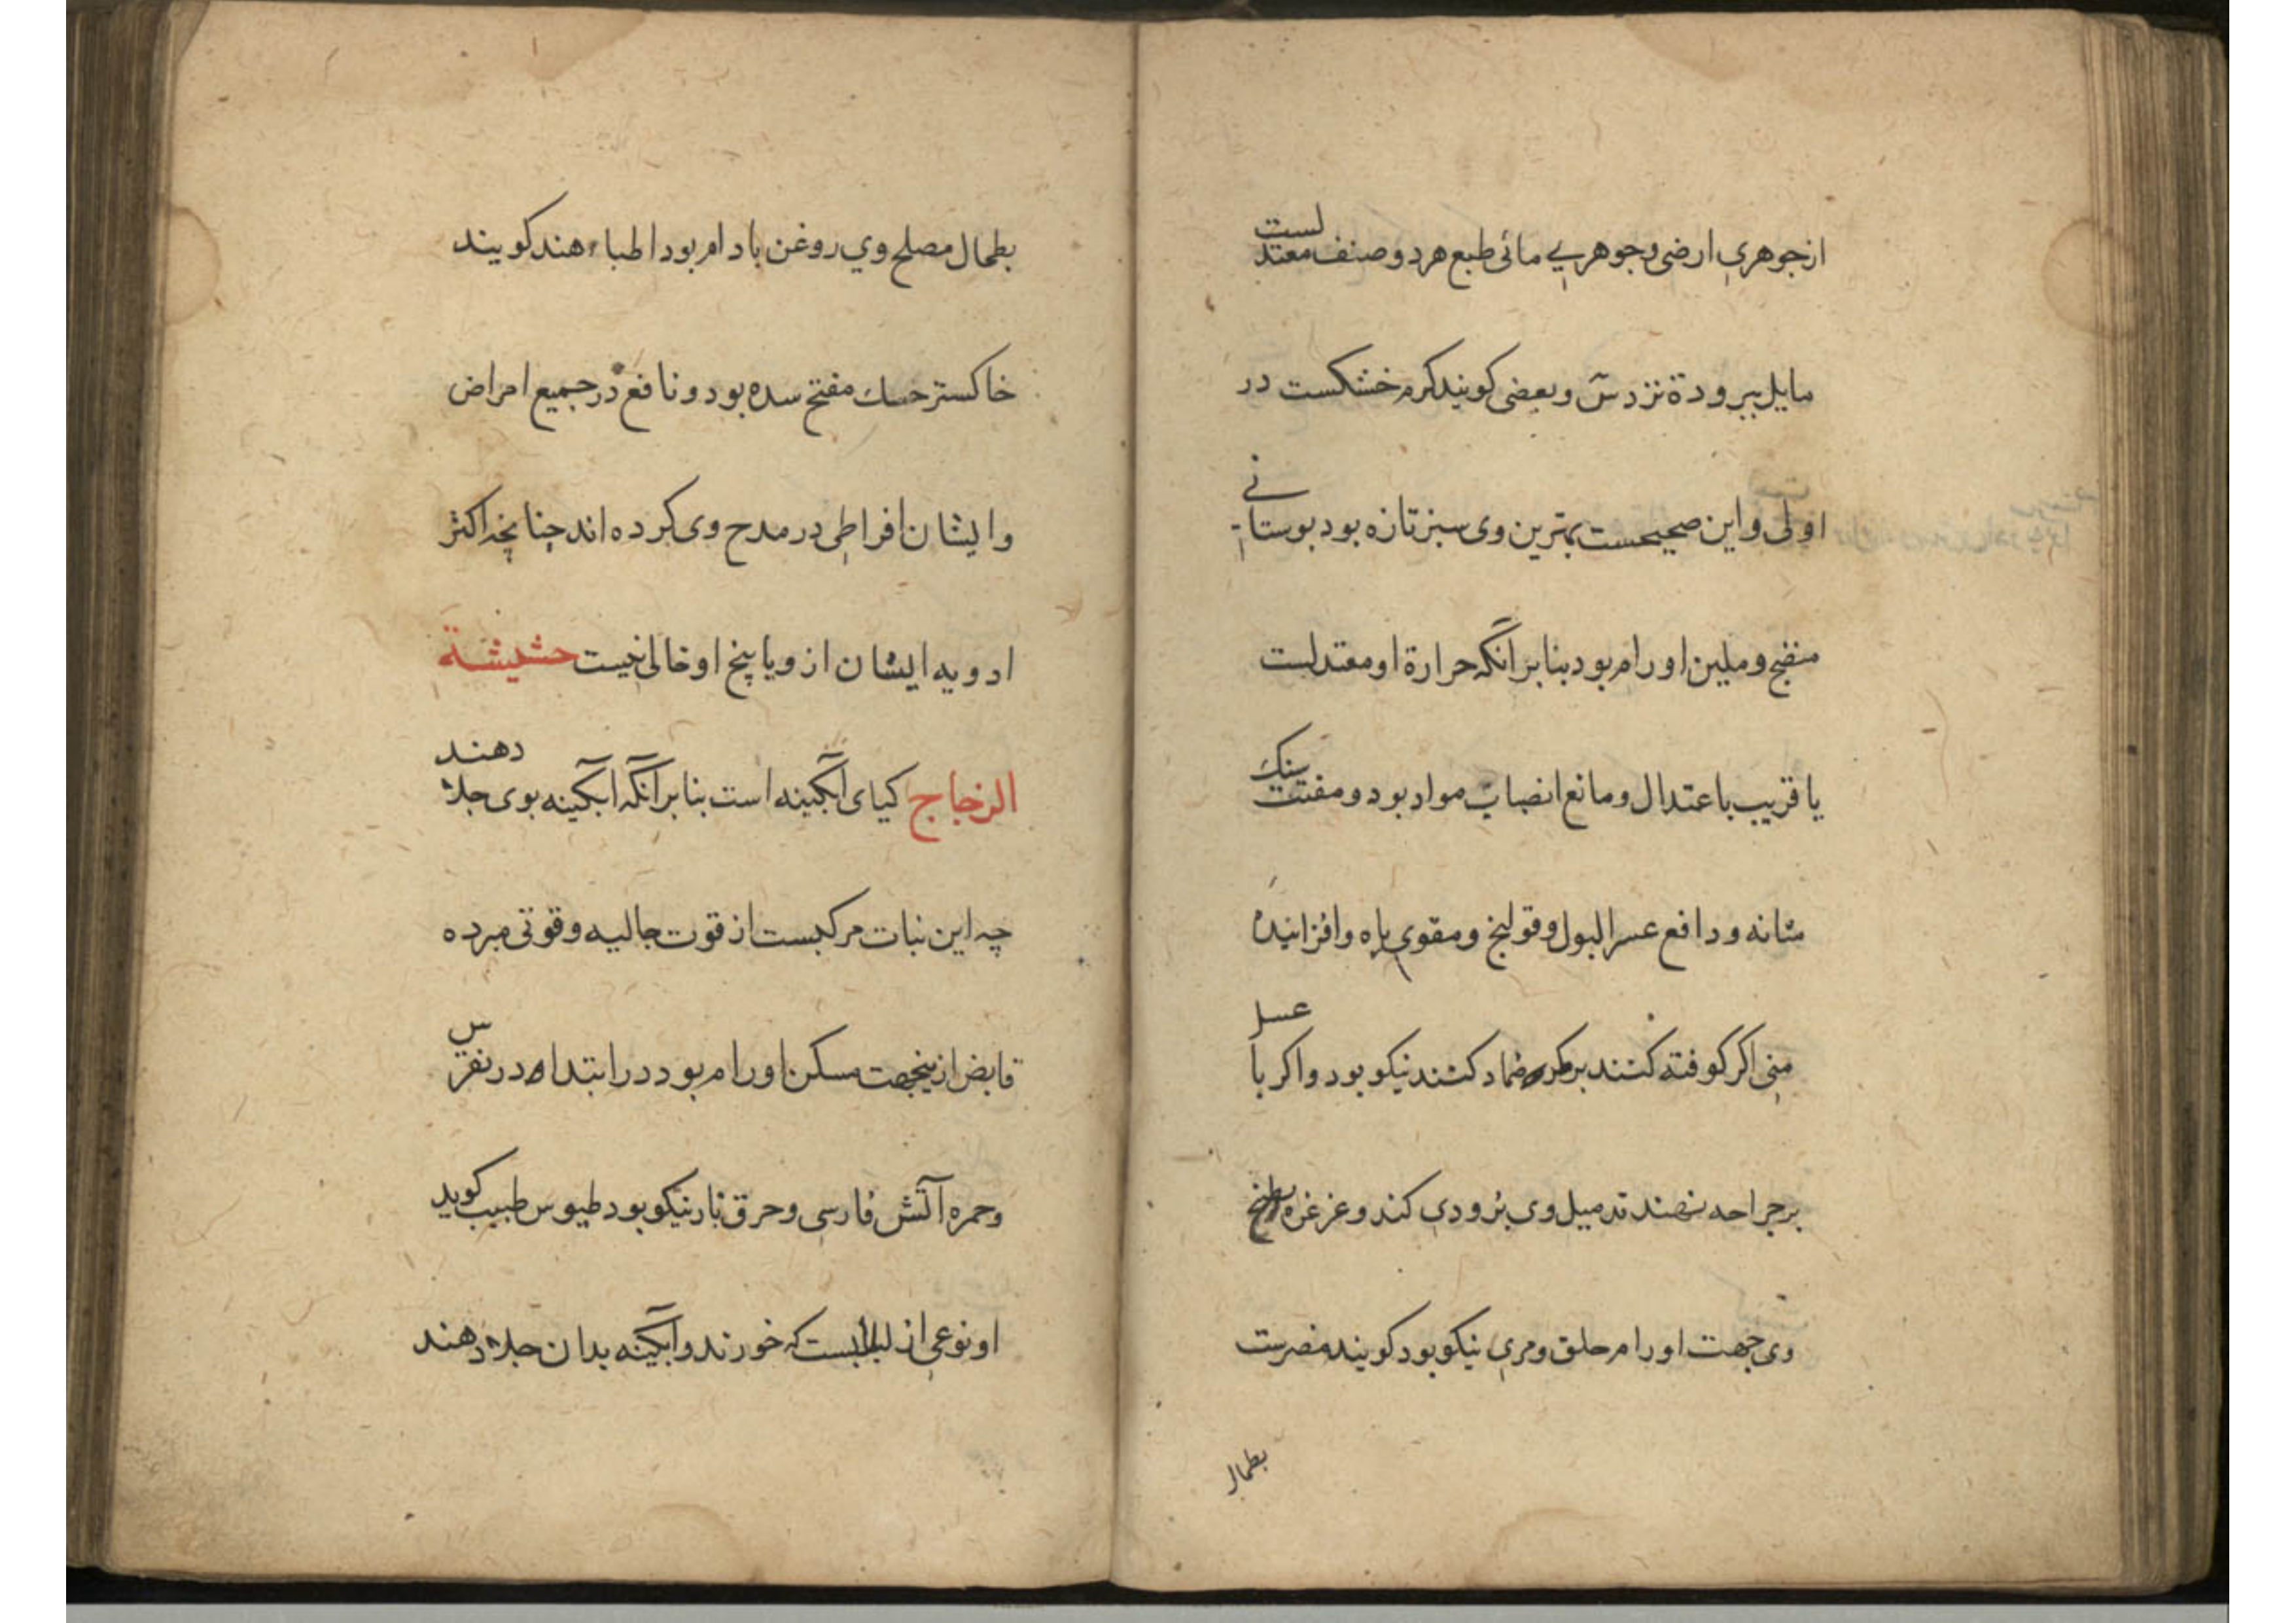 از جوهری ارضی و جوهری مائی طبع هر دو صنف معتدلست
مایل ببرودة نزد س و بعضی کویند کرم خشکست در
اولی و این صحیحست بهترین وی سبز تازه بود بوستانی
منضج و ملین اورام بود بنابر آنکه حرارة او معتدلست
یا قریب باعتدال و مانع انصباب مواد بود و مفتت سنک
مثانه و دافع عسر البول و قولنج و مقوی باه و افزاینده
منی اکر کوفته کنند ضماد کنند نیکو بود و اکر با عسل
بر جراحه نهند تدمیل وی بزودی کند و غرغره بطبخ
وی جهت اورام حلق و مری نیکو بود کویند مضرست
بطحال
بطحال مصلح وی روغن بادام بود اطباء هند کویند
خاکستر حسك مفتح سده بود و نافع در جمیع امراض
و ایشان افراطی در مدح وی کرده اند چنانچه اکثر
ادویه ایشان از و یا بیخ او خالی نیست حشیشة
الزجاج کیای آبکینه است بنابر آنکه آبکینه بوی جلا دهند
چه این نبات مرکبست از قوت جالیه و قوتی مبرده
قابض ازینجهت مسکن اورام بود در ابتدا و در نقرس
و حمره آتش فارسی و حرق نار نیکو بود طبیب کوید
او نوعی از لبلابست که خورند و آبکینه بدان جلا دهند